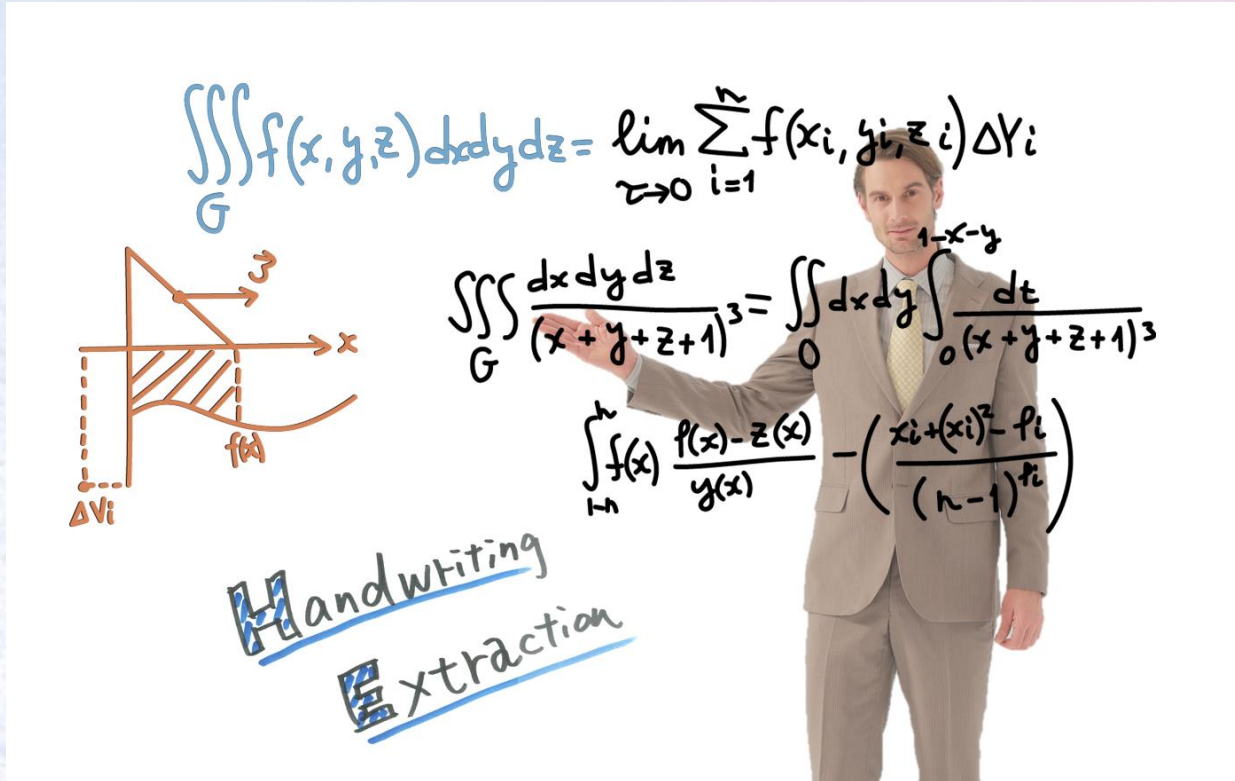 ∭_G f(x,y,z)dxdydz = lim_{τ→0} ∑_{i=1}^{n} f(xi, yi, zi) ΔYi
∭_G dx dy dz / (x+y+z+1)^3 = ∬_0 dx dy ∫_0^{1-x-y} dt / (x+y+z+1)^3
x
f(x)
ΔVi
∫_{1-n}^{n} f(x) (f(x)-z(x)) / y(x) - ((xi+(xi)^2 - fi) / (n-1)^{fi})
Handwriting
Extraction